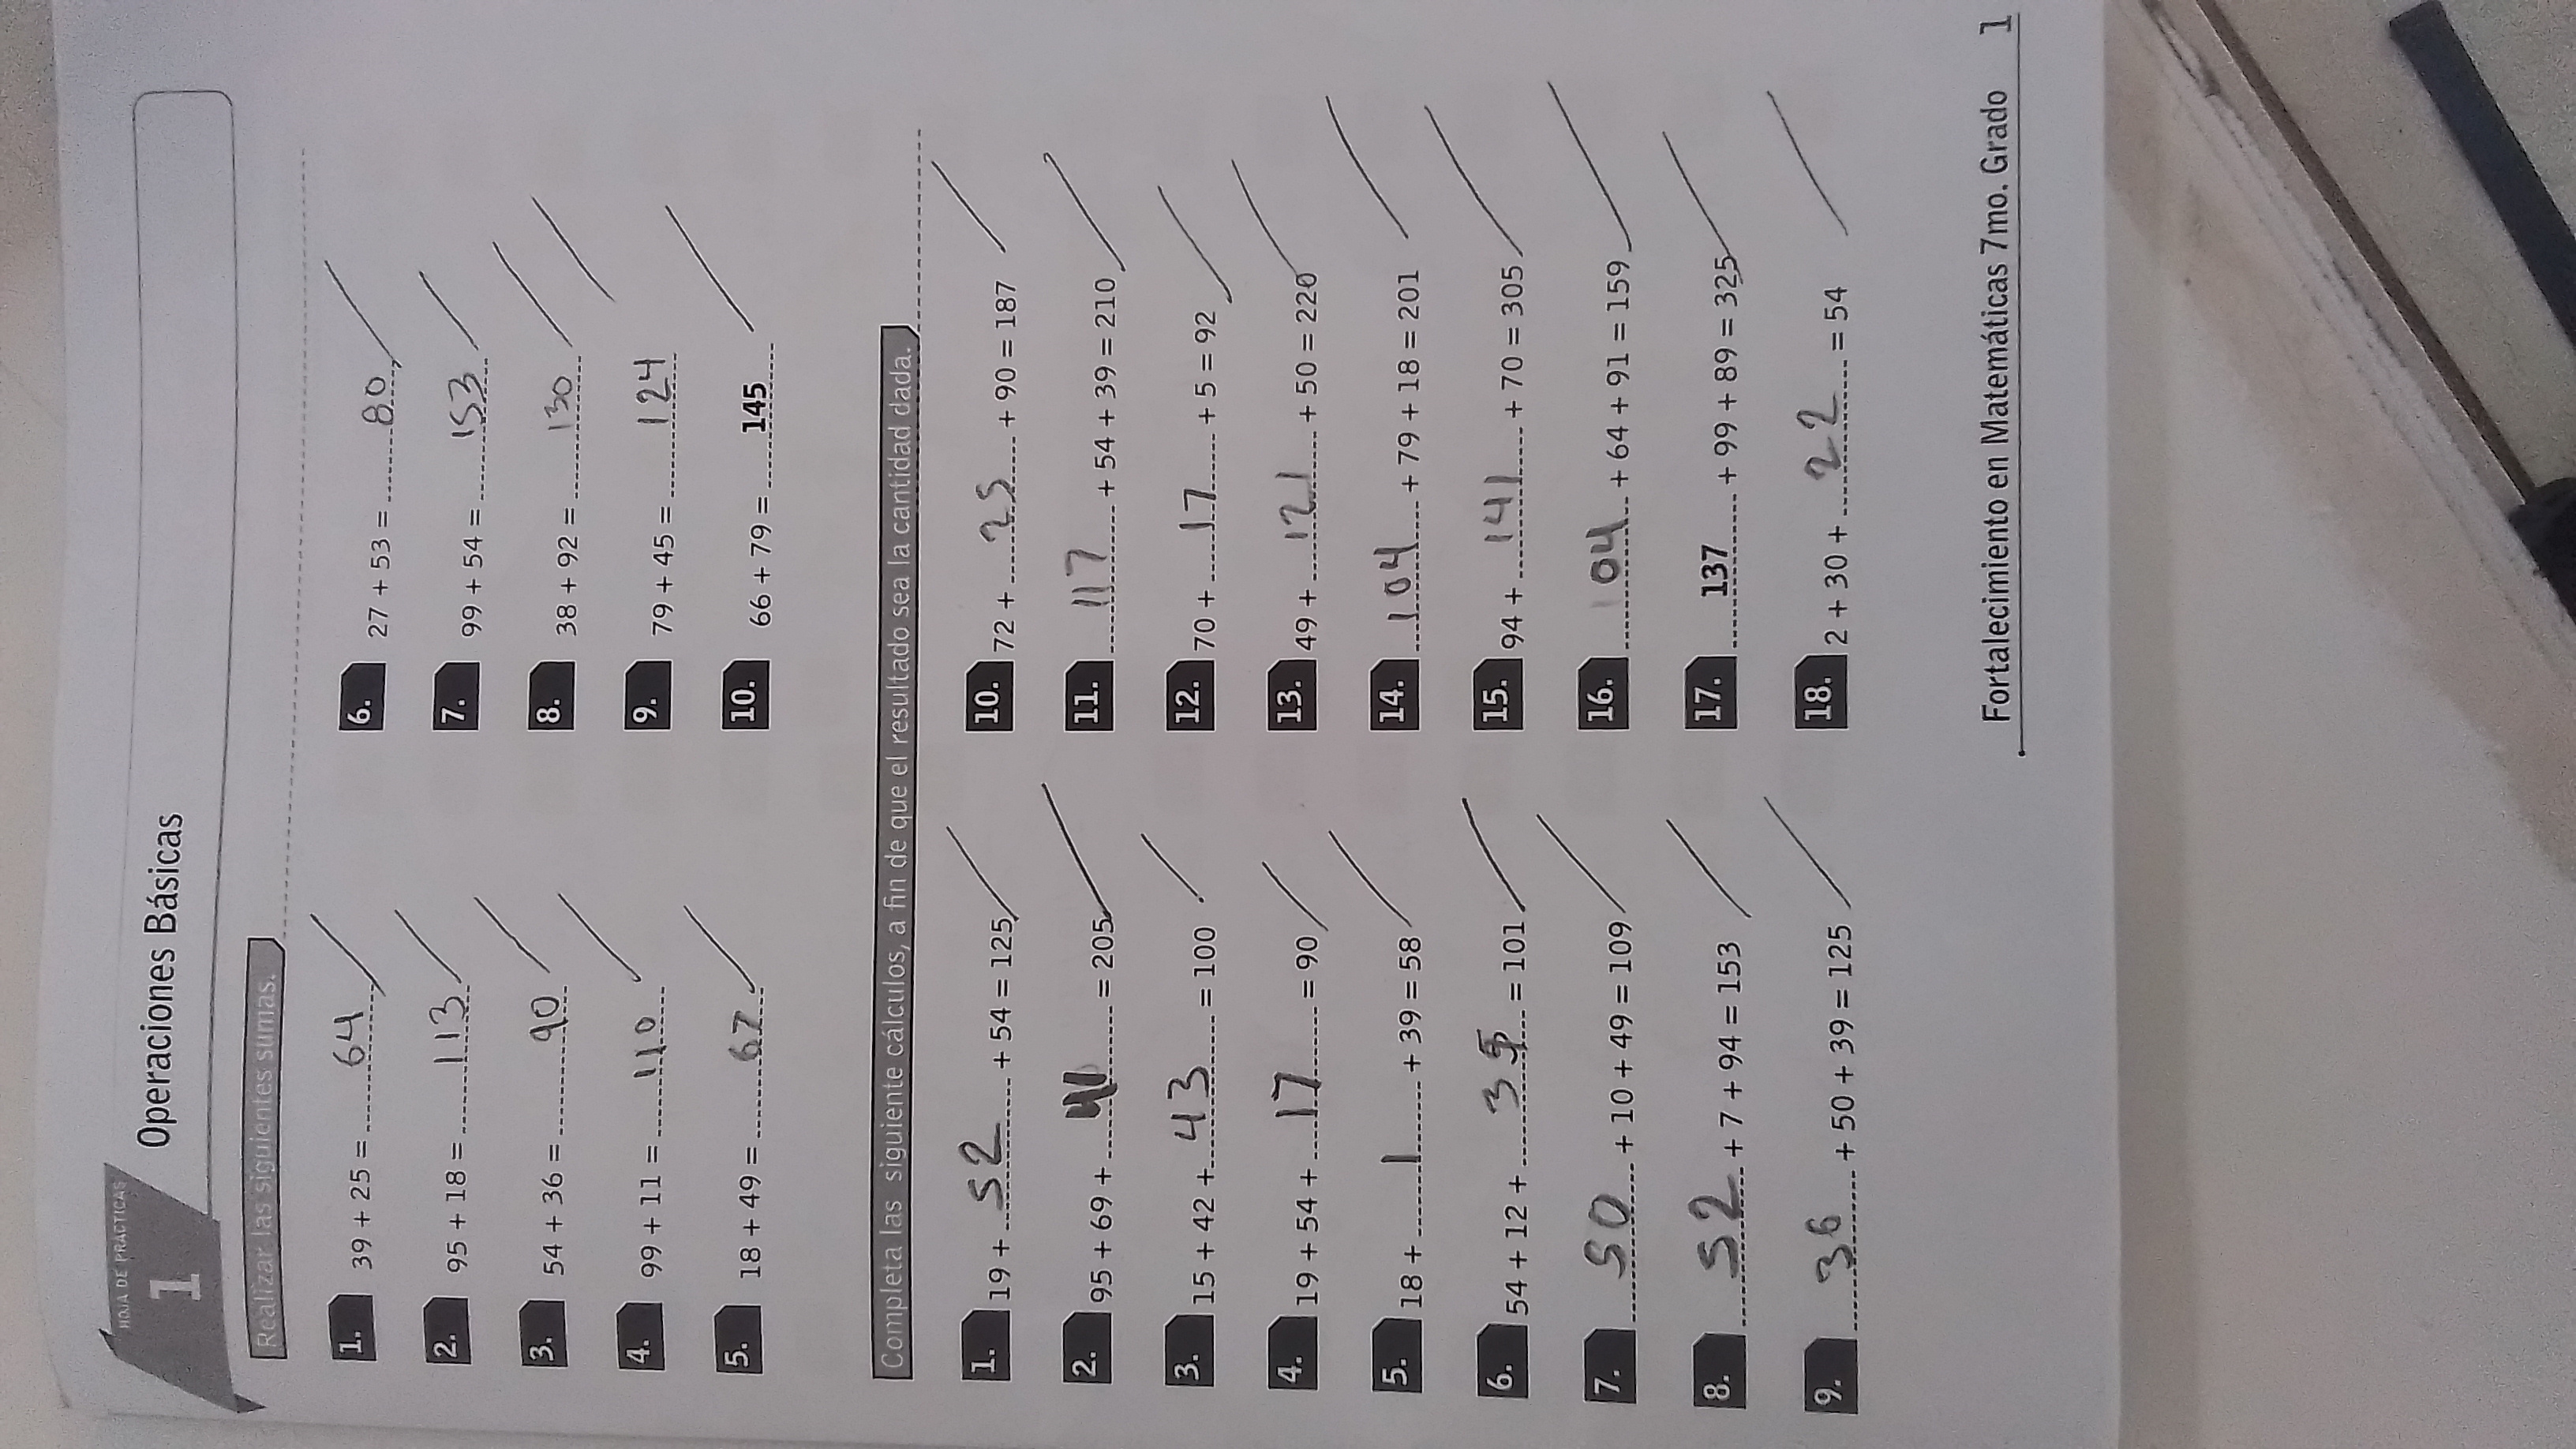 HOJA DE PRÁCTICAS
1
Operaciones Básicas
Realizar las siguientes sumas.
1. 39 + 25 = 64
2. 95 + 18 = 113
3. 54 + 36 = 90
4. 99 + 11 = 110
5. 18 + 49 = 67
6. 27 + 53 = 80
7. 99 + 54 = 153
8. 38 + 92 = 130
9. 79 + 45 = 124
10. 66 + 79 = 145
Completa las siguiente cálculos, a fin de que el resultado sea la cantidad dada.
1. 19 + 52 + 54 = 125
2. 95 + 69 + 41 = 205
3. 15 + 42 + 43 = 100
4. 19 + 54 + 17 = 90
5. 18 + 1 + 39 = 58
6. 54 + 12 + 35 = 101
7. 50 + 10 + 49 = 109
8. 52 + 7 + 94 = 153
9. 36 + 50 + 39 = 125
10. 72 + 25 + 90 = 187
11. 117 + 54 + 39 = 210
12. 70 + 17 + 5 = 92
13. 49 + 121 + 50 = 220
14. 104 + 79 + 18 = 201
15. 94 + 141 + 70 = 305
16. 104 + 64 + 91 = 159
17. 137 + 99 + 89 = 325
18. 2 + 30 + 22 = 54
Fortalecimiento en Matemáticas 7mo. Grado 1